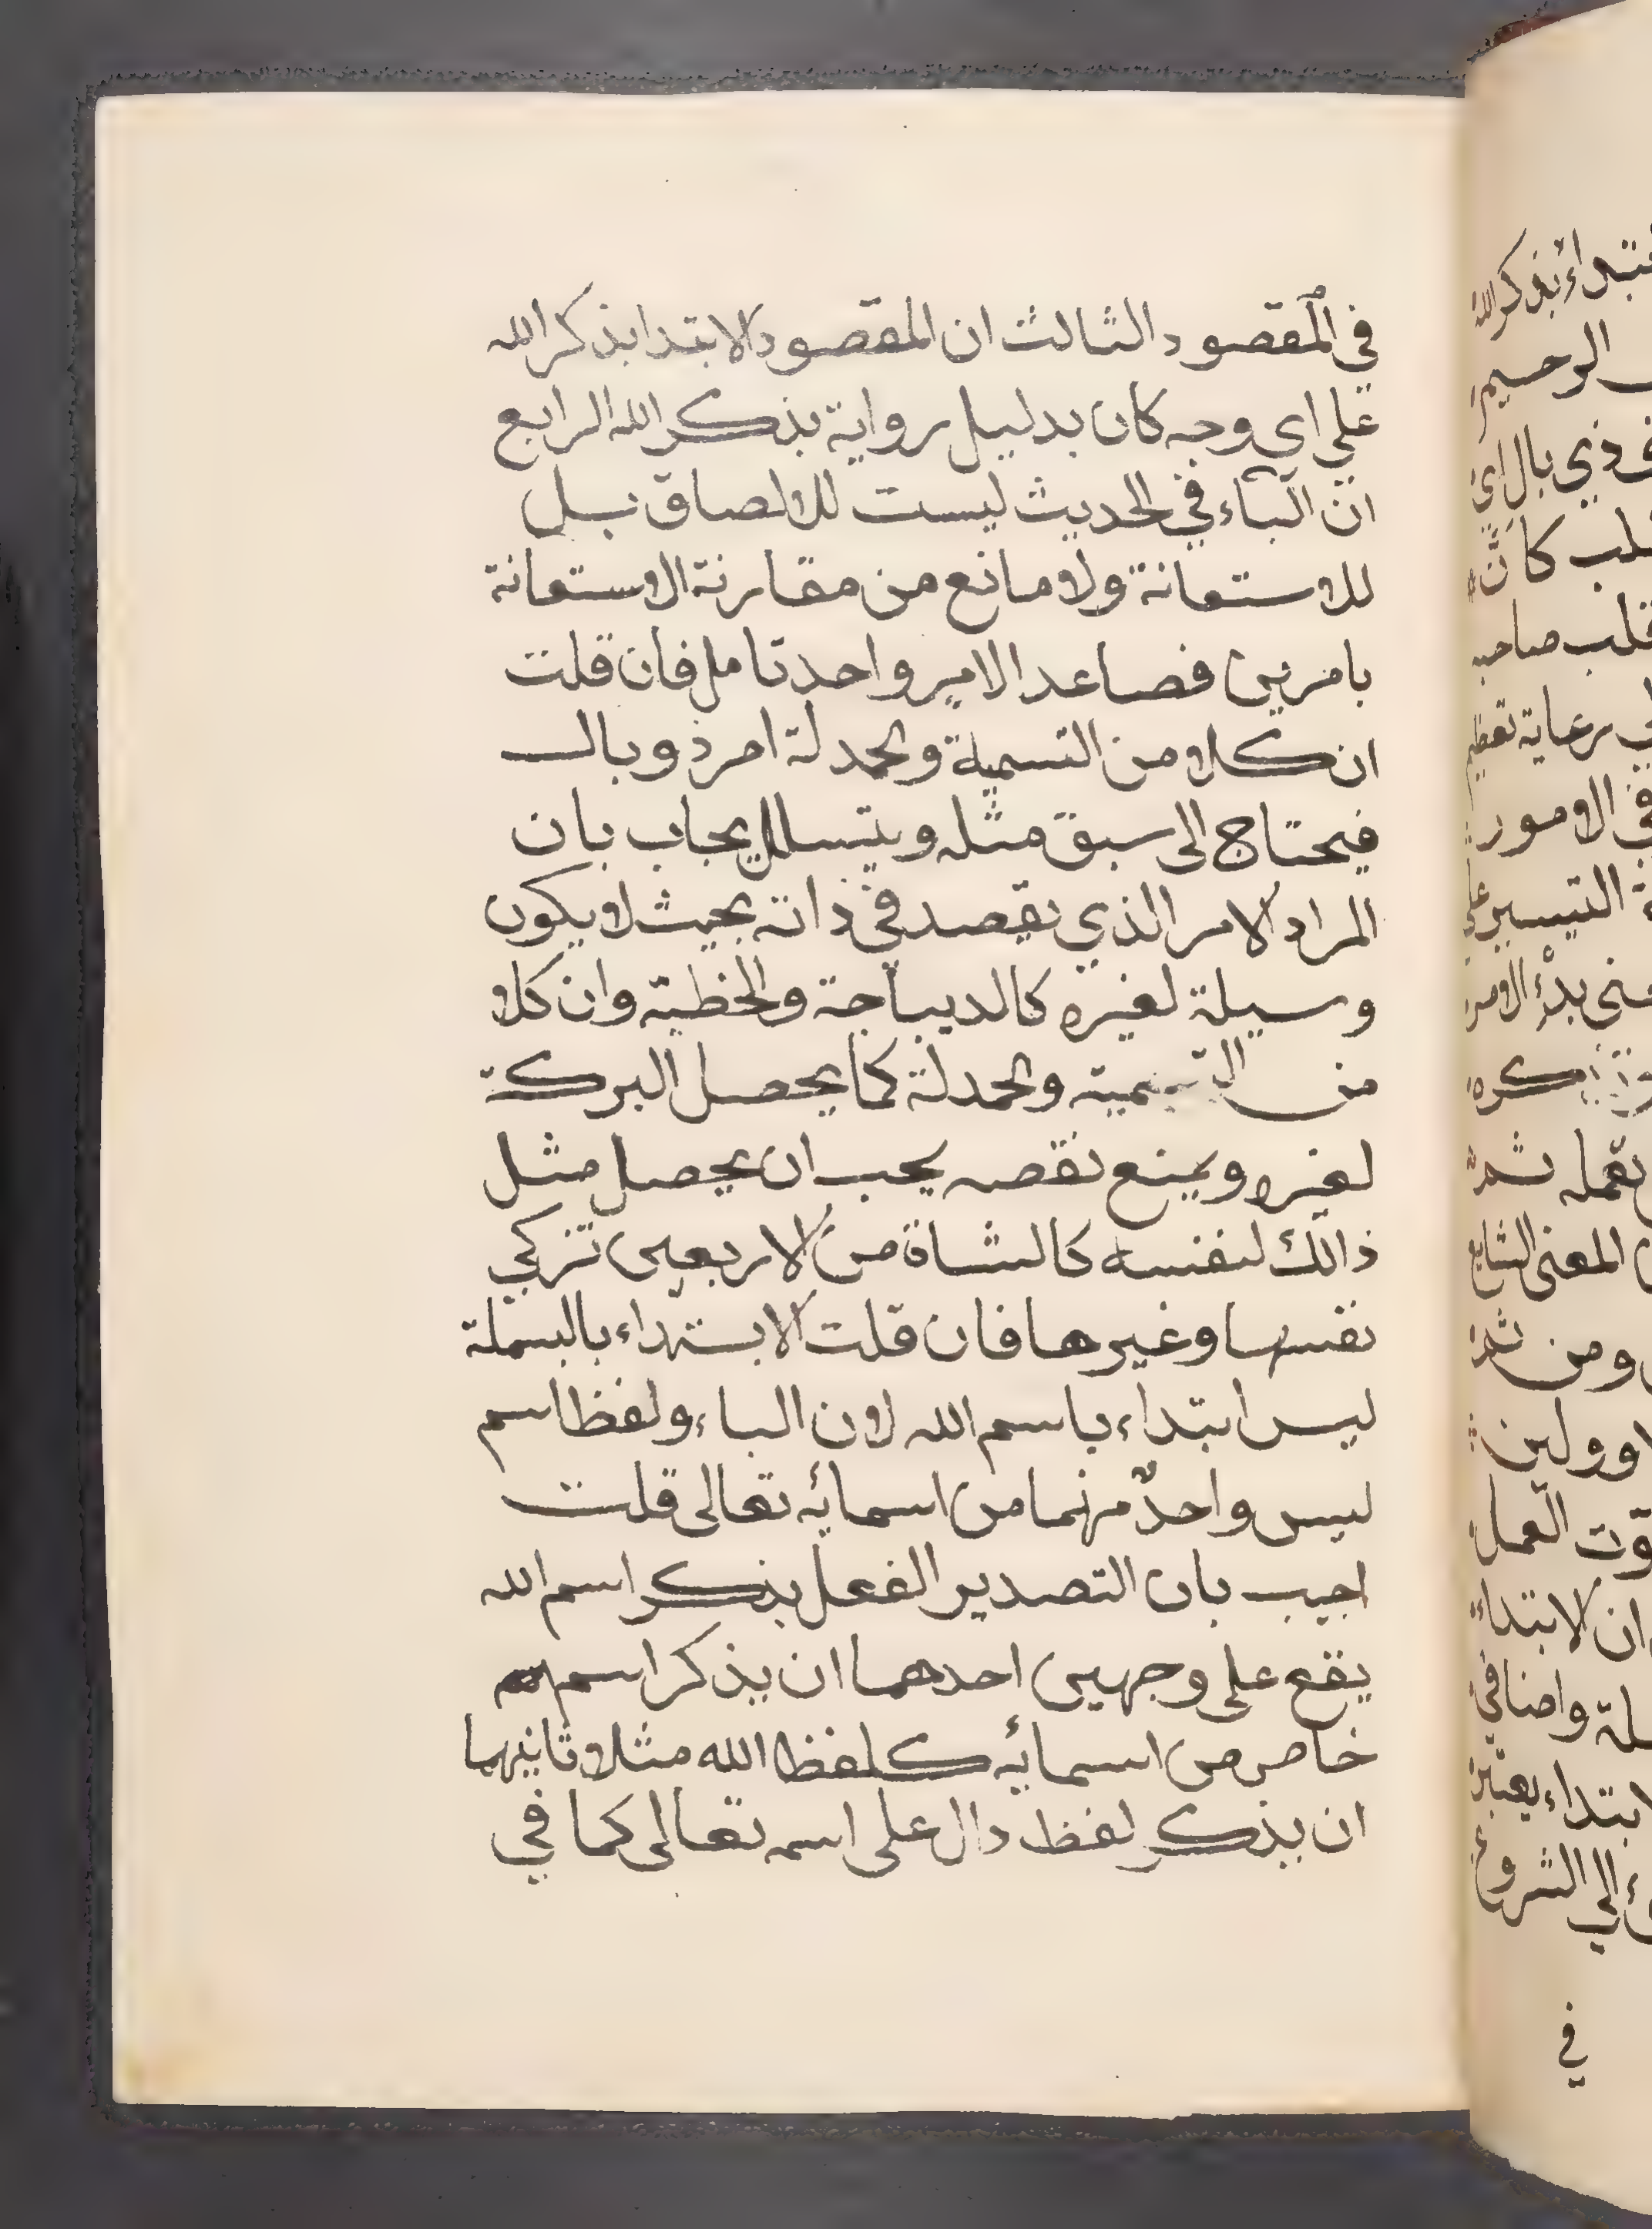 في المقصود الثالث ان المقصود الابتدا بذكر الله
علي اي وجه كان بدليل رواية بذكر الله الرابع
ان الباء في الحديث ليست للالصاق بل
للاستعانة ولا مانع من مقارنة الاستعانة
بامرين فصاعدا لامر واحد تامل فان قلت
ان كلا من التسمية والحمدلة امر ذو بال
فيحتاج الى سبق مثله ويتسلل يجاب بان
المراد الامر الذي يقصد في ذاته بحيث لا يكون
وسيلة لغيره كالديباجة والخطبة وان كلا
من التسمية والحمدلة كما يحصل البركة
لغيره ويمنع نقصه يجب ان يحصل مثل
ذالك لنفسه كالشاة من الاربعين تزكي
نفسها وغيرها فان قلت الابتداء بالبسملة
ليس ابتداء باسم الله لان الباء ولفظ اسم
ليس واحدٌ منهما من اسمائه تعالى قلت
اجيب بان التصدير الفعل بذكر اسم الله
يقع على وجهين احدهما ان يذكر اسم
خاص من اسمائه كلفظ الله مثلا ثانيهما
ان يذكر لفظ دال على اسمه تعالى كما في
في